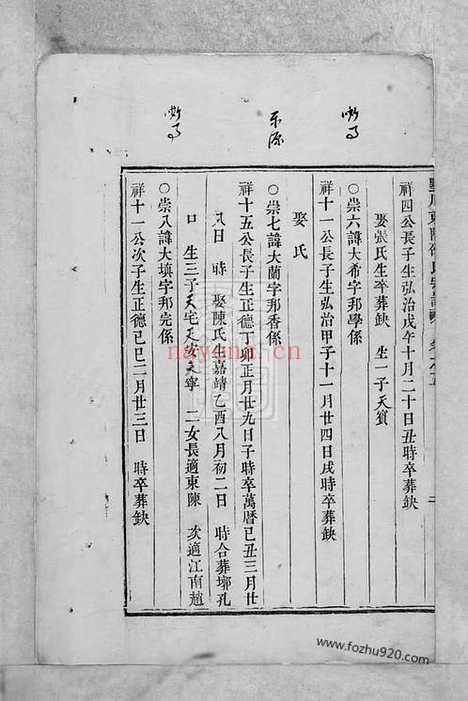 祥四公長子生弘治戊午十月二十日丑時卒葬缺
娶張氏生卒葬缺 生一子天賓
〇崇六諱大希字邦學係
祥十一公長子生弘治甲子十一月廿四日戌時卒葬缺
娶 氏
〇崇七諱大蘭字邦香係
祥十五公長子生正德丁卯正月廿九日子時卒萬曆己丑三月廿
八日 時 娶陳氏生嘉靖乙酉八月初二日 時合葬墎孔
口 生三子天宅天 天寧 二女長適東陳 次適江南趙
〇崇八諱大填字邦完係
祥十一公次子生正德己巳二月廿三日 時卒葬缺
东源
海量人.com
www.fozhu920.com